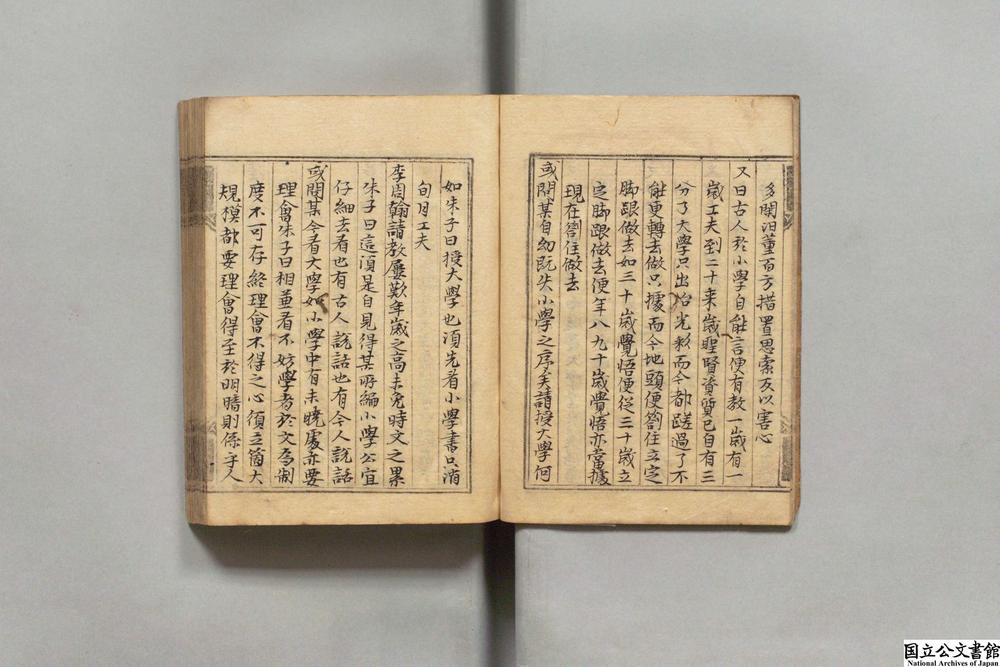 多闕汩董百方措置思索反以害心
又曰古人於小學自能言便有教一歲有一
歲工夫到二十来歲聖賢資質已自有三
分了大學只出治光彩而今都蹉過了不
能更轉去做只據而今地頭便劄住立定
脚跟做去如三十歲覺悟便從三十歲立
定脚跟做去便年八九十歲覺悟亦當據
現在劄住做去
或問某自幼既失小學之序矣請授大學何
如朱子曰授大學也須先看小學書只消
旬月工夫
李周翰請教屢歎年歲之高未免時文之累
朱子曰這須是自見得某所編小學公宜
仔細去看也有古人說話也有今人說話
或問某今看大學如小學中有未曉處亦要
理會朱子曰相並看不妨學者於文為制
度不可存終理會不得之心須立箇大
規模都要理會得至於明暗則係乎人
国立公文書館
National Archives of Japan